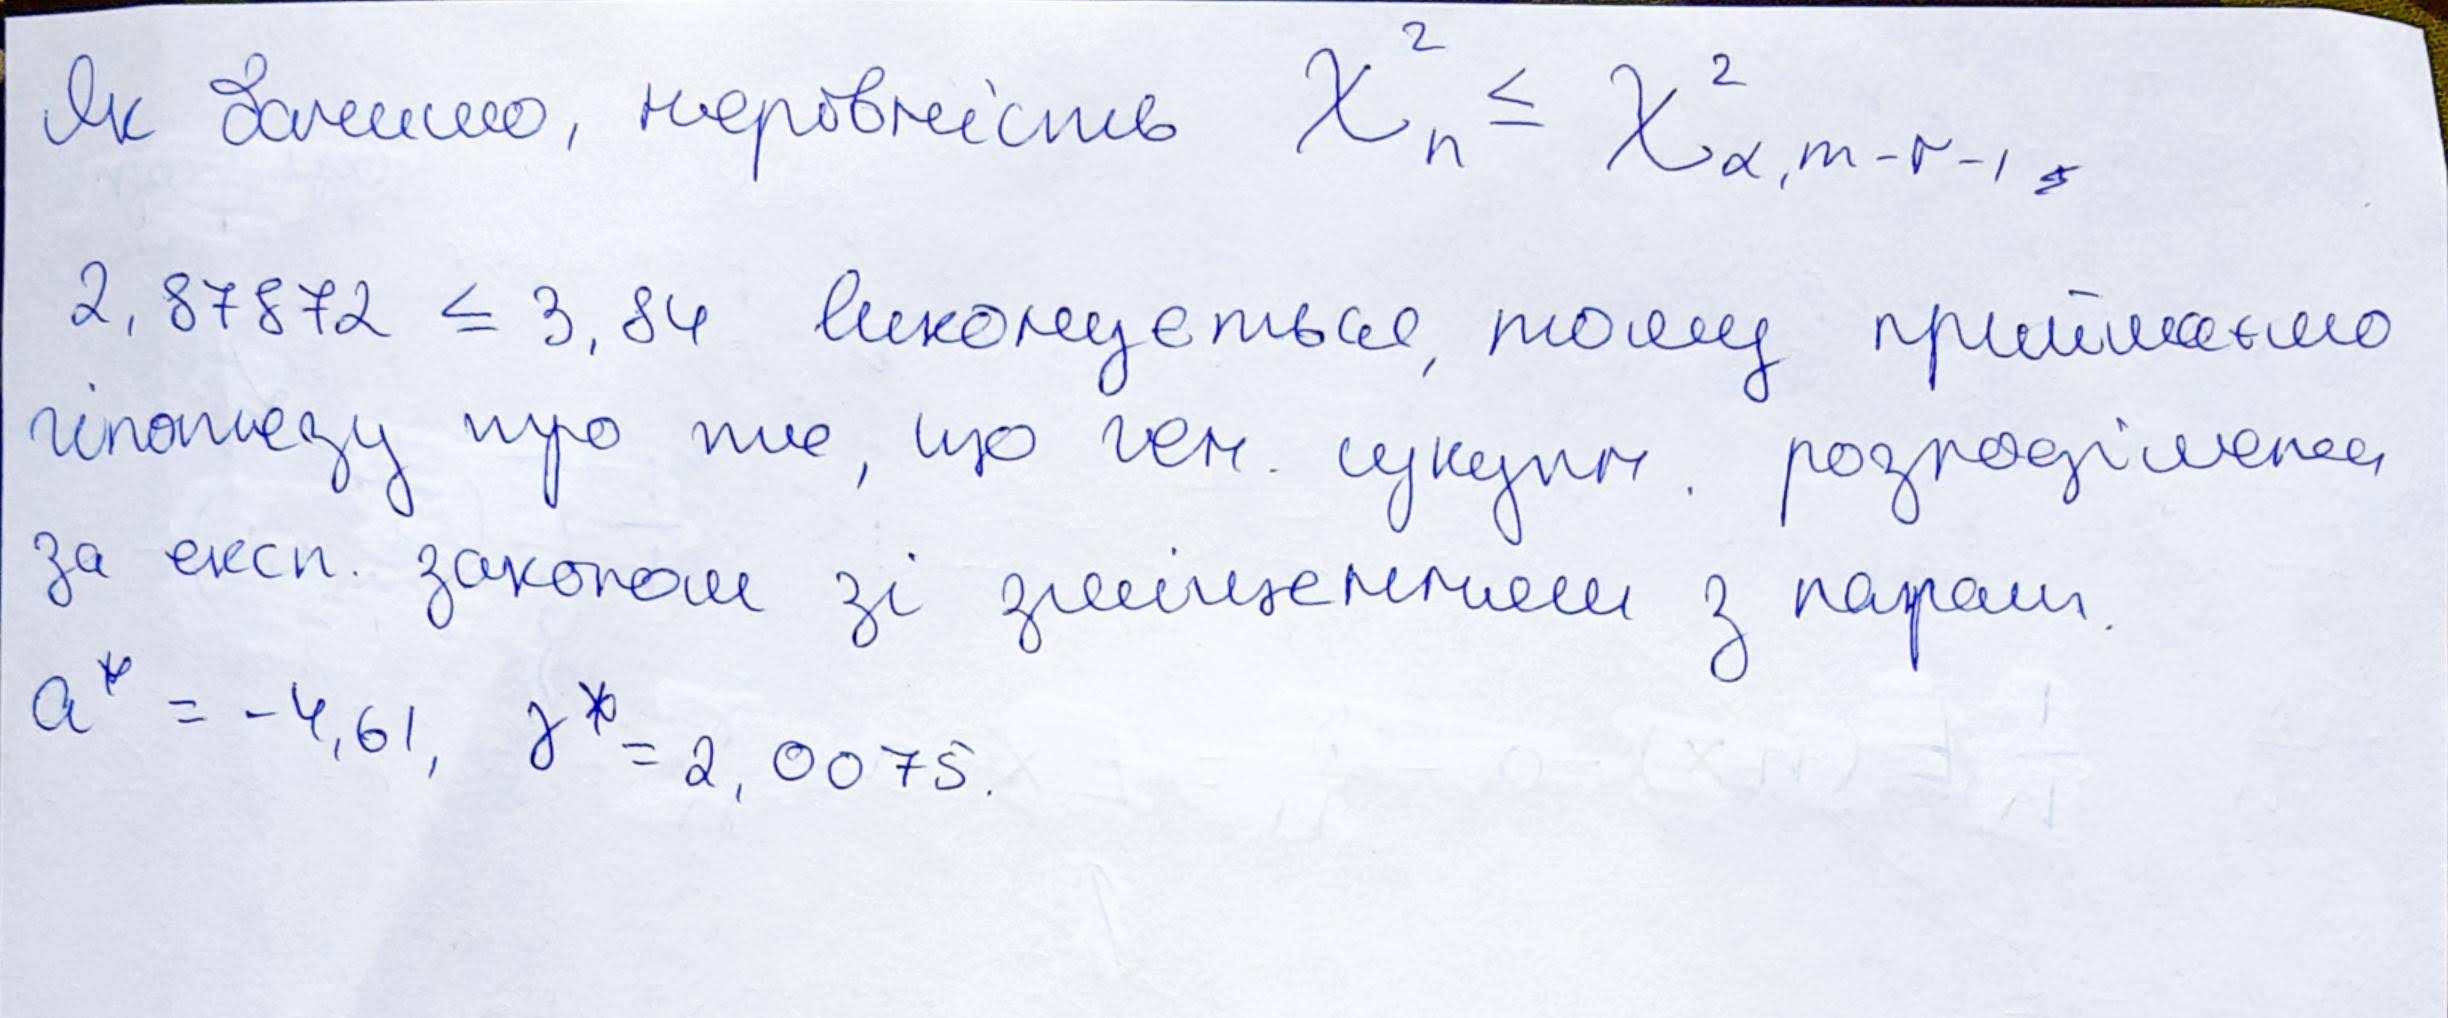 Як бачимо, нерівність χ²ₙ ≤ χ²α,m-r-1,
2,87872 ≤ 3,84 виконується, тому приймаємо
гіпотезу про те, що ген. сукупн. розподілена
за експ. законом зі зміщенням з парам.
a* = -4,61, γ* = 2,0075.